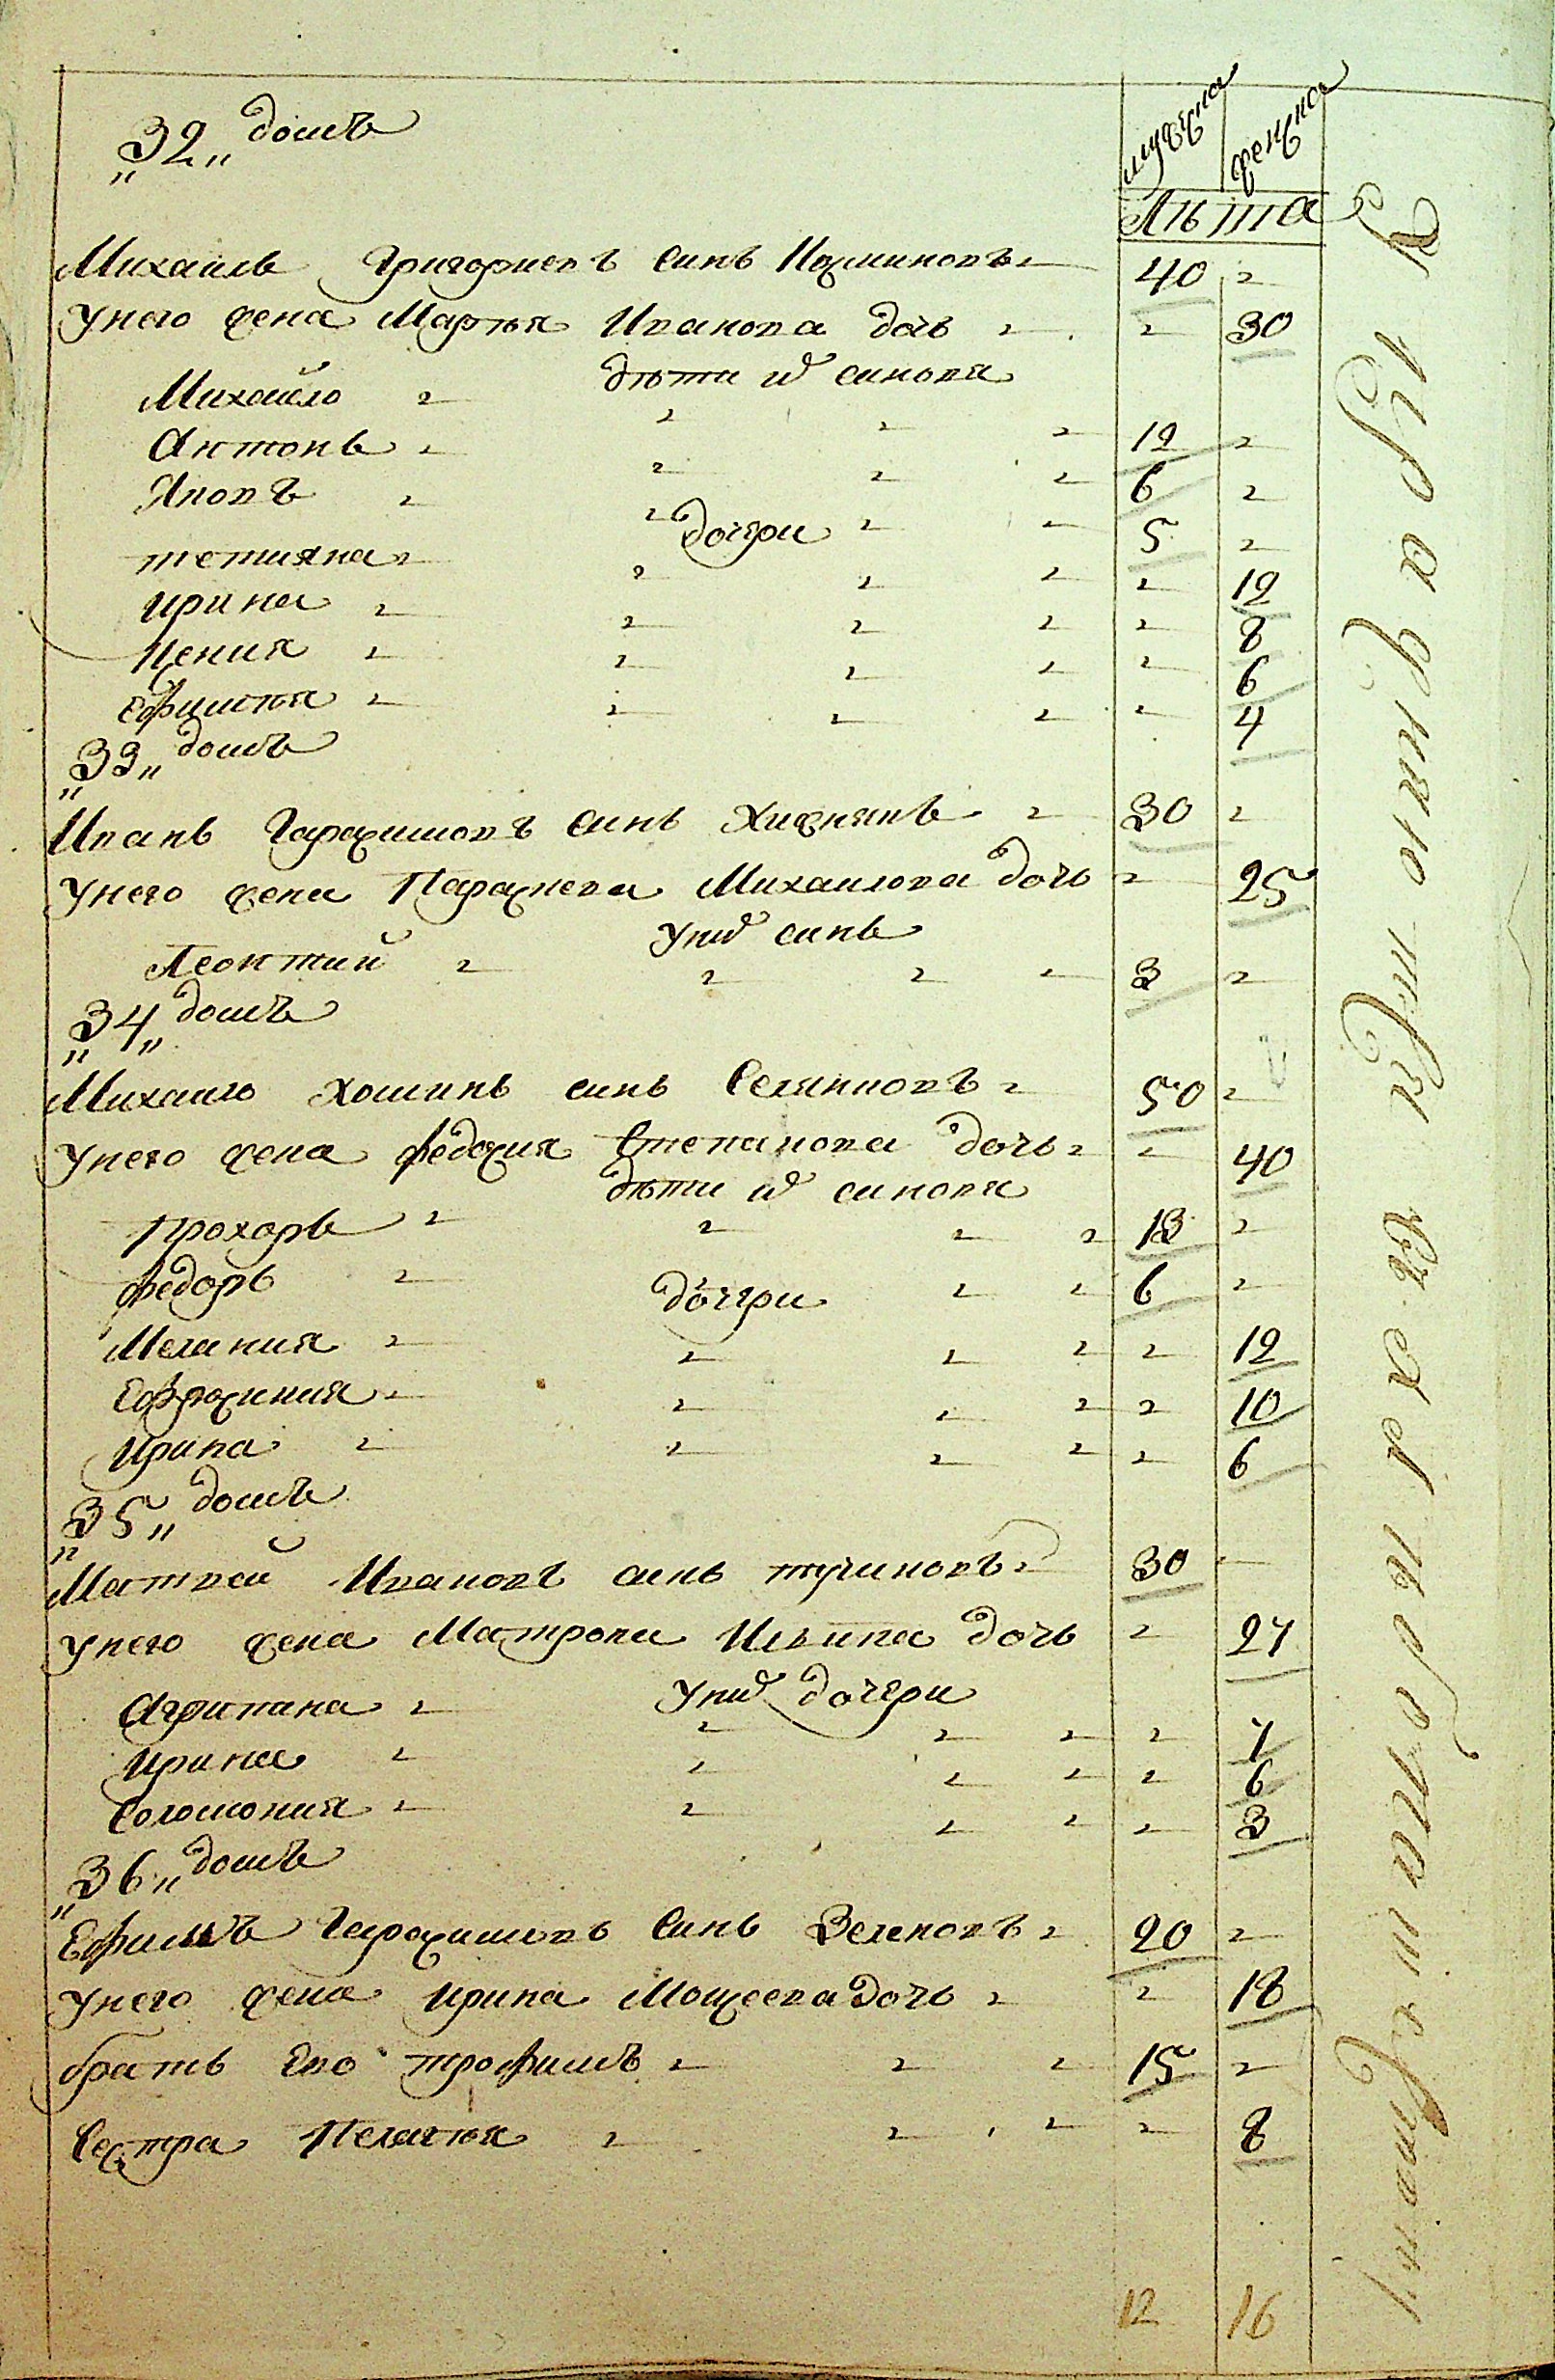 „32„ домъ
мужеска
женска
Лѣта
Михаилъ Григориевъ синъ Козминовъ 40
Унего жена Марѳѣя Иванова дочь 30
дѣти их синовя
Михайло 12
Антонъ 6
Яковъ 5
дочери
тетияна 12
ирина 8
Ксения 6
Ефимѣя 4
„33„ домъ
Иванъ Гарасимовъ синъ Хижнякъ 30
Унего жена Параскева Михаилова дочь 25
Уних синъ
Леонтий 3
„34„ домъ
Михаило Хоминъ синъ Селяниовъ 50
Унего жена Федосия Степанова дочь 40
дѣти их синовя
Прохоръ 13
Федоръ 6
дочери
Мелания 12
Ефросиния 10
Ирина 6
„35„ домъ
Матвей Ивановъ синъ тучиновъ 30
Унего жена Матрона Ильина дочь 27
Уних дочери
Агрипана 7
Ирина 6
Соломония 3
„36„ домъ
Ефимъ Гарасимовъ Синъ Зеленовъ 20
Унего жена ирина Мосеева дочь 18
братъ Ево трофимъ 15
Сестра Пелагѣя 8
12 16